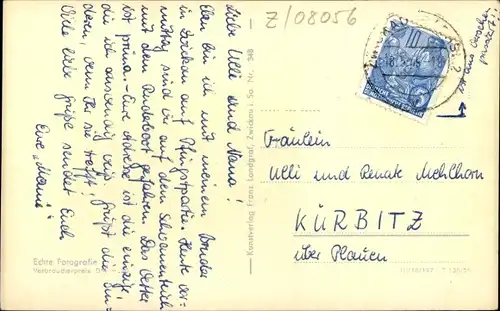 Liebe Ulli und Nana!
Eben bin ich mit meinem Bruder
in Zwickau auf Pfingstpartie. Heute vor-
mittag sind wir auf dem Schwanenteich
mit dem Ruderboot gefahren. Das Wetter
ist prima. Eure Adresse ist die einzige,
die ich auswendig weiß. Grüßt die
wenn Ihr sie trefft,
Viele liebe Grüße sendet Euch
Eure „Mausi“
Echte Fotografie
Verbraucherpreis
Kunstverlag Franz Landgraf, Zwickau i. Sa. Nr. 948
Z/08056
10
Fräulein
Ulli und Renate Mehlhorn
KÜRBITZ
über Plauen